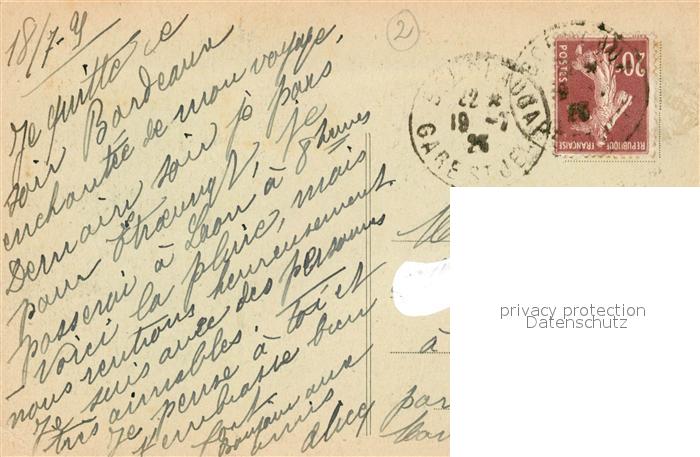 18/7-25
2
Je quitte ce
soir Bordeaux
enchantée de mon voyage,
Demain soir je pars
pour Étrœungt, je
passerai à Laon à 8 heures
Voici la pluie, mais
nous rentrons heureusement
Je suis avec des personnes
très aimables.
Je pense à toi et
t'embrasse bien
fort.
Bonjour aux
amis
Alice
22
19 - 7
25
GARE ST JEAN
20c
POSTES
REPUBLIQUE FRANÇAISE
à
par
privacy protection
Datenschutz